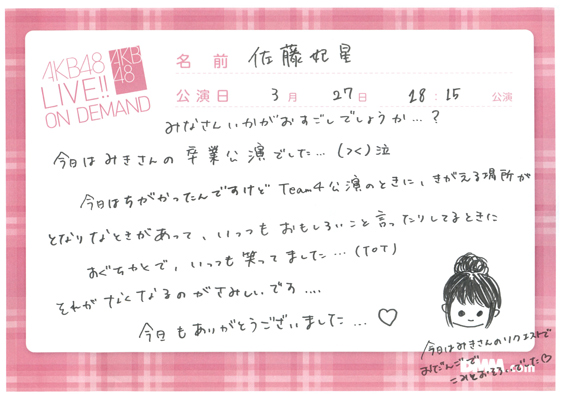 AKB48
LIVE!!
ON DEMAND
AKB
48
名前 佐藤妃星
公演日 3月 27日 18:15 公演
みなさんいかがおすごしでしょうか…?
今日はみきさんの卒業公演でした…(><)泣
今日はちがかったんですけど Team4公演のときに、きがえる場所が
となりなときがあって、いっつもおもしろいこと言ったりしてるときに
おぐちゃとで、いっつも笑ってました…(ToT)
それがなくなるのがさみしいです....
今日もありがとうございました…♡
今日はみきさんのリクエストで
おだんごで
こみとおそろいでした♡
DMM.com